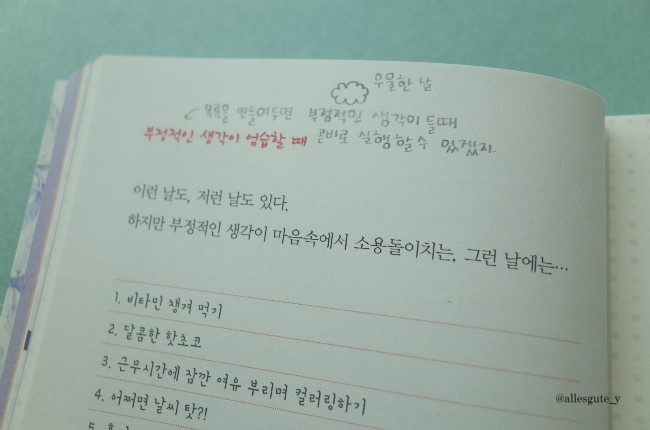 우울한 날
목록을 만들어두면 부정적인 생각이 들때
부정적인 생각이 엄습할 때 곧바로 실행할 수 있겠지.
이런 날도, 저런 날도 있다.
하지만 부정적인 생각이 마음속에서 소용돌이치는, 그런 날에는…
1. 비타민 챙겨 먹기
2. 달콤한 핫초코
3. 근무시간에 잠깐 여유 부리며 컬러링하기
4. 어쩌면 날씨 탓?!
@allesgute_y